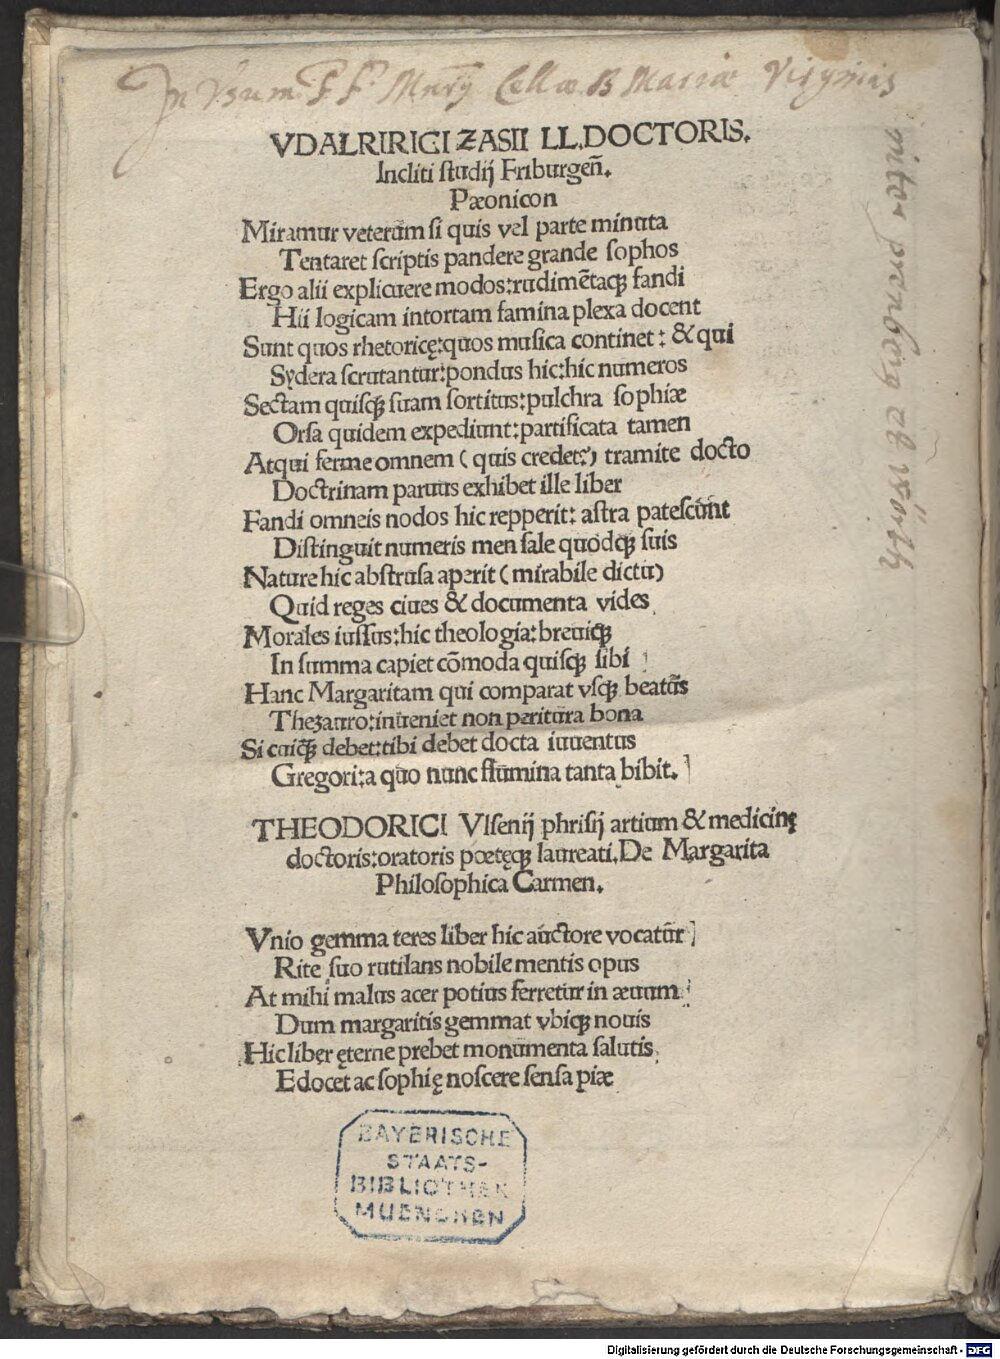 In Vsum F F Cellæ B Mariæ Virginis
VDALRIRICI ZASII LL.DOCTORIS.
Incliti studij Friburgeñ.
Pæonicon
Miramur veterum si quis vel parte minuta
Tentaret scriptis pandere grande sophos
Ergo alii explicuere modos:rudimētaqꝫ fandi
Hii logicam intortam famina plexa docent
Sunt quos rhetoricę:quos musica continet: & qui
Sydera scrutantur:pondus hic:hic numeros
Sectam quisqꝫ suam sortitus:pulchra sophiæ
Orsa quidem expediunt:partificata tamen
Atqui ferme omnem (quis credet?) tramite docto
Doctrinam paruus exhibet ille liber
Fandi omneis nodos hic repperit: astra patescunt
Distinguit numeris mensale quodqꝫ suis
Nature hic abstrusa aperit (mirabile dictu)
Quid reges ciues & documenta vides
Morales iussus:hic theologia:breuiqꝫ
In summa capiet cōmoda quisqꝫ sibi
Hanc Margaritam qui comparat vsqꝫ beatus
Thezauro:inueniet non peritura bona
Si cuiqꝫ debet:tibi debet docta iuuentus
Gregori:a quo nunc flumina tanta bibit.
THEODORICI Vlsenij phrisij artium & medicinę
doctoris:oratoris poetęqꝫ laureati.De Margarita
Philosophica Carmen.
Vnio gemma teres liber hic auctore vocatur
Rite suo rutilans nobile mentis opus
At mihi malus acer potius ferretur in æuum
Dum margaritis gemmat vbiqꝫ nouis
Hic liber ęterne prebet monumenta salutis
Edocet ac sophię noscere sensa piæ
BAYERISCHE
STAATS-
BIBLIOTHEK
MUENCHEN
Digitalisierung gefördert durch die Deutsche Forschungsgemeinschaft - DFG